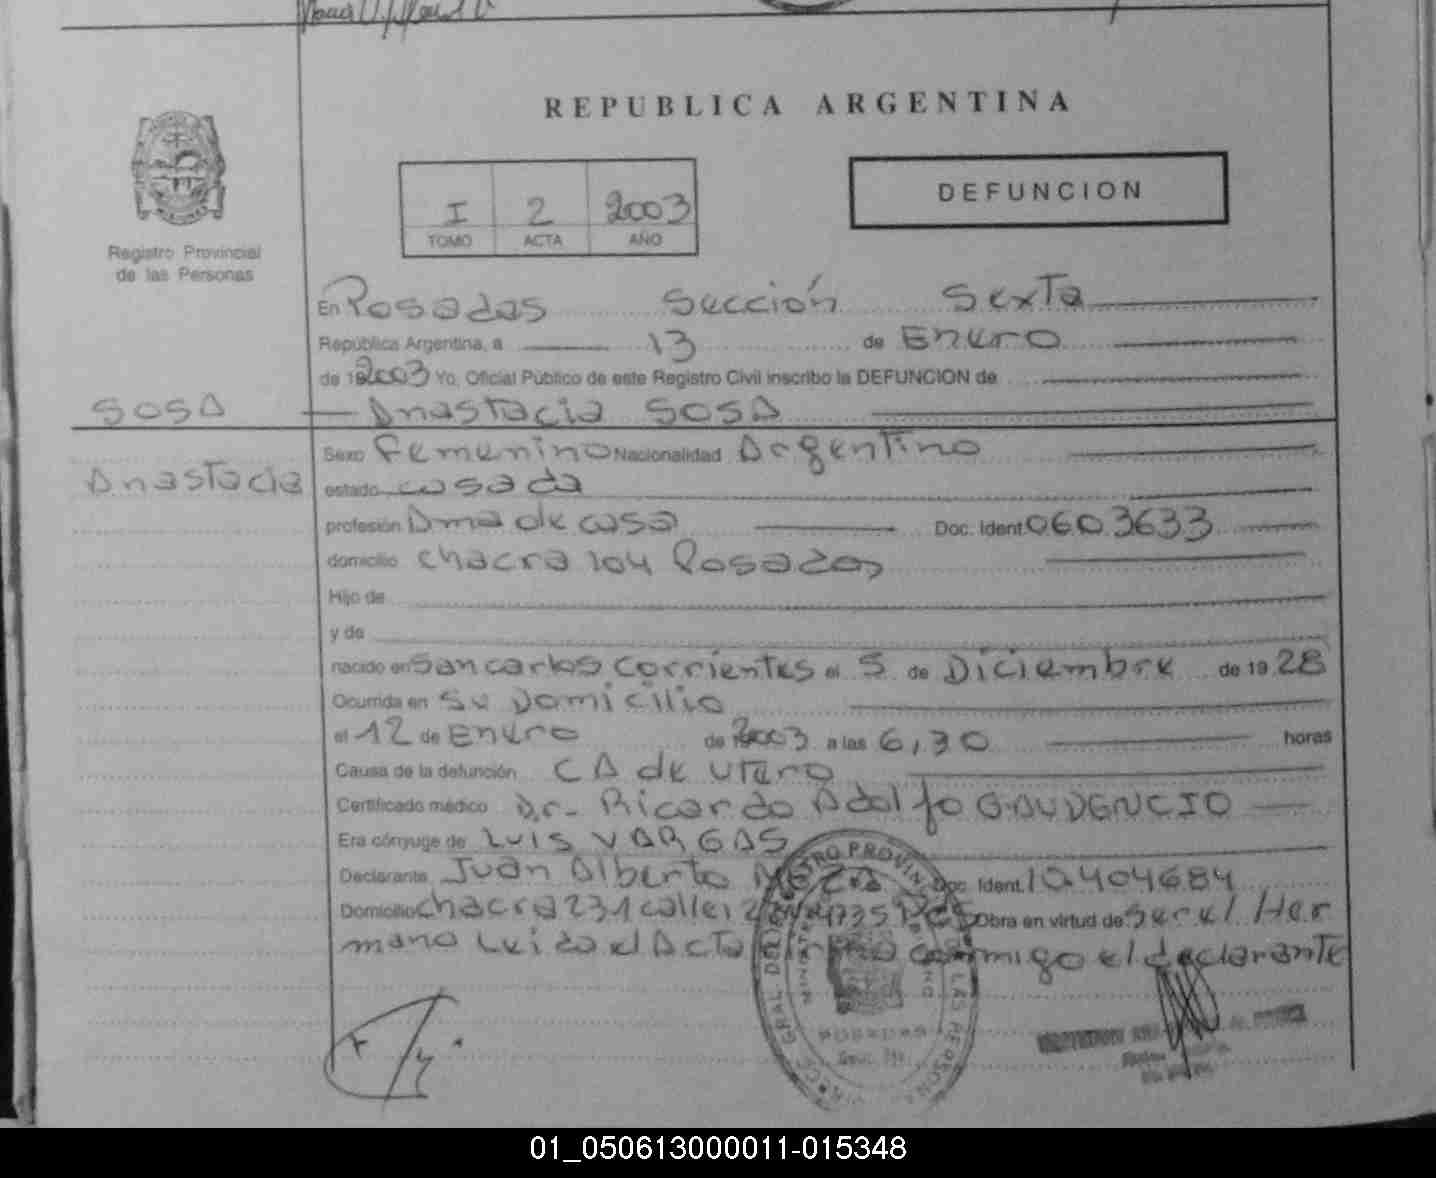 REPUBLICA ARGENTINA
I 2 2003
TOMO ACTA AÑO
DEFUNCION
Registro Provincial
de las Personas
En Posadas Sección Sexta
República Argentina, a 13 de Enero
de 192003 Yo, Oficial Público de este Registro Civil inscribo la DEFUNCION de
SOSA Anastacia SOSA
Anastacia
Sexo Femenino Nacionalidad Argentino
estado casada
profesión Ama de casa Doc. Ident. 0603633
domicilio chacra 104 Posadas
Hijo de
y de
nacido en San carlos Corrientes el 5 de Diciembre de 19 28
Ocurrida en Su Domicilio
el 12 de Enero de 2003 a las 6,30 horas
Causa de la defunción CA de utero
Certificado médico Dr. Ricardo Adolfo GAUDENCIO
Era cónyuge de LUIS VARGAS
Declarante Juan Alberto Doc. Ident. 10.404684
Domicilio chacra 231 calle 4735 Obra en virtud de ser el Her
mano Leida el Acta conmigo el declarante
POSADAS
01_050613000011-015348